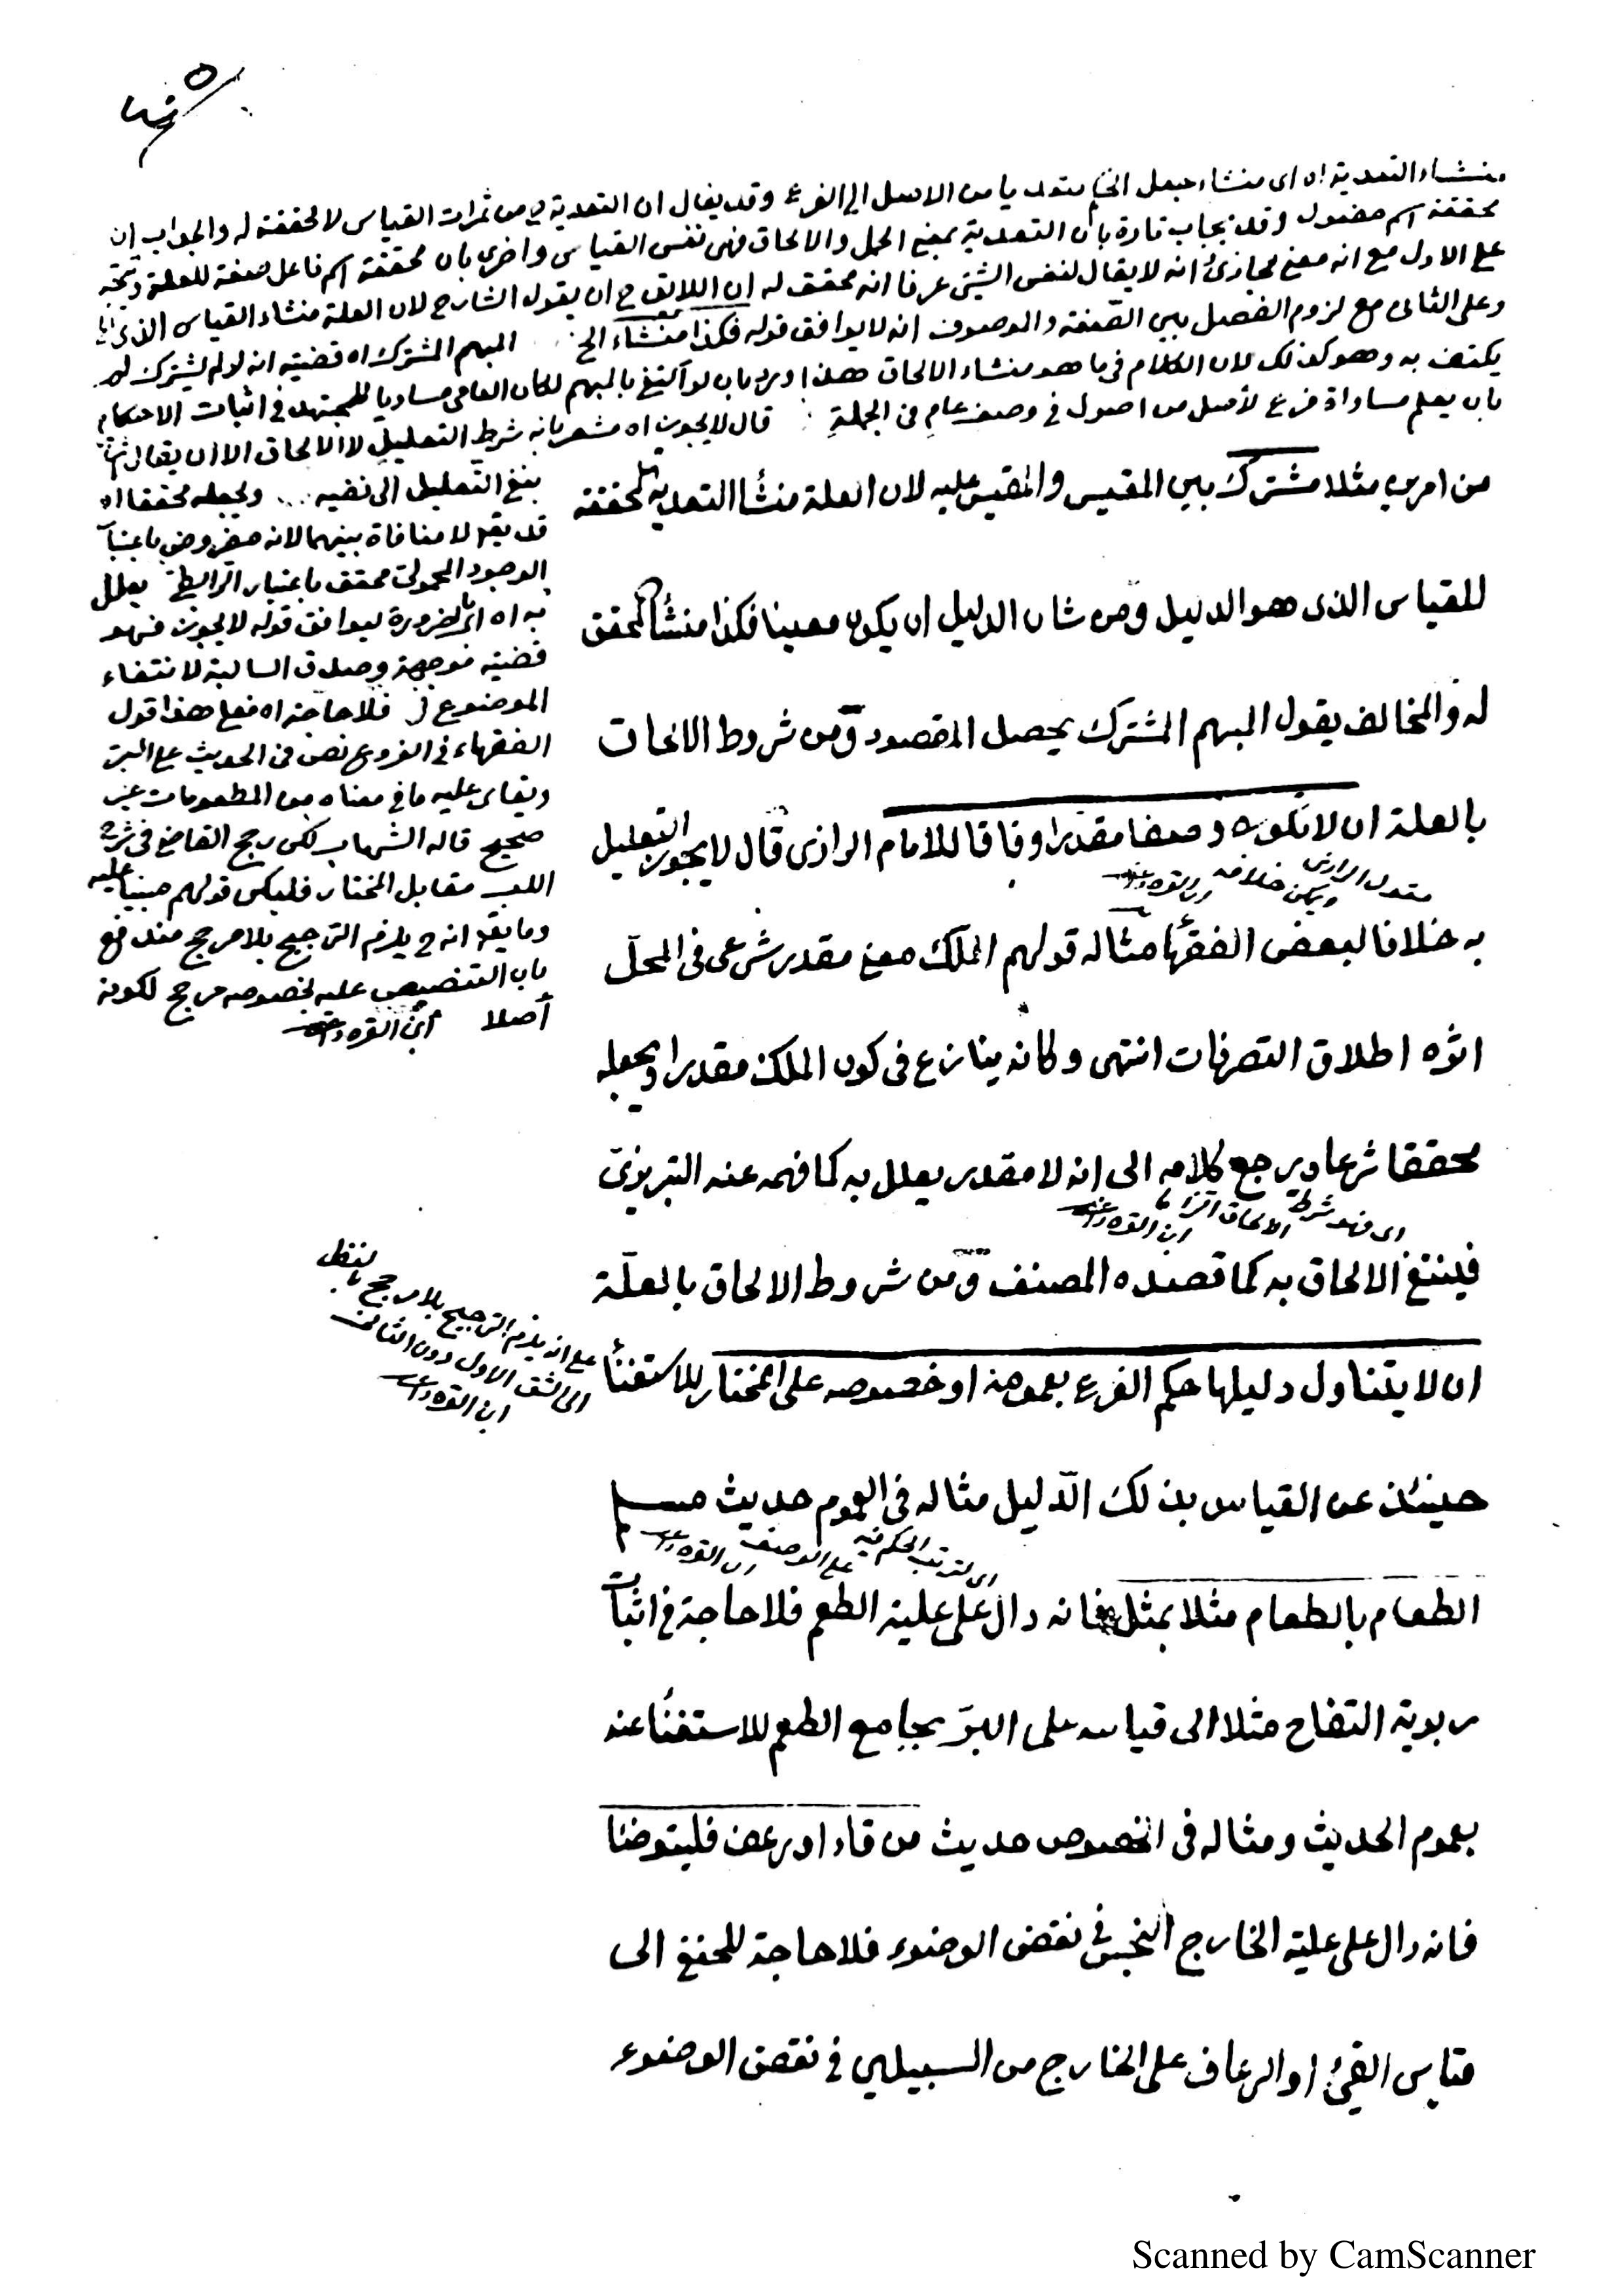 منشاء التعدية اه اى منشاء جعل الخ متعديا من الاصل الى الفرع وقد يقال ان التعدية من ثمرات القياس لا محققة له والجواب ان
محققة اسم مفعول وقد يجاب تارة بأن التعدية بمعنى الحمل والالحاق فهى نفس القياس واخرى بان محققة اسم فاعل صفة للعلة ويتجه
على الاول مع انه معنى مجازى انه لا يقال لنفس الشيئ عرفا انه محقق له ان اللائق ح ان يقول الشارح لان العلة منشاء القياس الذى
وعلى الثانى مع لزوم الفصل بين الصفة والموصوف انه لا يوافق قوله فكذا منشاء الخ المبهم المشترك اه قضيته انه لو لم يشترك لم
يكتف به وهو كذلك لان الكلام فى ما هو منشاء الالحاق هذا ورد بان لو اكتفى بالمبهم لكان العامى مساويا للمجتهد فى اثبات الاحكام
بان يعلم مساواة فرع لأصل من اصول فى وصف عام فى الجملة قال لا يجوز اه مشعر بانه شرط التعليل لا الالحاق الا ان يقال
بنفى التعليل الى نفيه ويجعله محققا اه
قد يقو لا منافاة بينهما لانه مفروض باعتبار
الوجود المحمولى محقق باعتبار الرابطى يعلل
به اه اى بالضرورة ليوافق قوله لا يجوز فهو
قضية موجهة وصدق السالبة لانتفاء
الموضوع فلا حاجة اه فعلى هذا قول
الفقهاء فى الفروع نص فى الحديث على البر
ويقاس عليه ما فى معناه من المطعومات غير
صحيح قاله الشهاب لكن رجح القاضى فى شرح
اللب مقابل المختار فليكن قولهم مبنيا عليه
وما يقو انه ح يلزم الترجيح بلا مرجح مندفع
بان التنصيص عليه بخصوصه مرجح لكونه
أصلا ابن القره داغى
من امرين مثلا مشترك بين المقيس والمقيس عليه لان العلة منشأ التعدية المحققة
للقياس الذى هو الدليل ومن شان الدليل ان يكون معينا فكذا منشأ المحقق
له والمخالف يقول المبهم المشترك يحصل المقصود ومن شروط الالحاق
بالعلة ان لا تكون وصفا مقدرا وفاقا للامام الرازى قال لا يجوز التعليل
مقول الرازى ويمكن خلافه ابن القره داغى
به خلافا لبعض الفقهأ مثاله قولهم الملك معنى مقدر شرعى فى المحل
اثره اطلاق التصرفات انتهى وكانه ينازع فى كون الملك مقدرا ويجعله
محققا شرعا ويرجع كلامه الى انه لا مقدر يعلل به كما فهمه عنه التبريزى
اى فهو شرط الالحاق ابن القره داغى
فينتفى الالحاق به كما قصده المصنف ومن شروط الالحاق بالعلة
ان لا يتناول دليلها حكم الفرع بعمومه او خصوصه على المختار للاستغنأ
على انه يلزم الترجيح بلا مرجح بالنظر
الى الشق الاول دون الثانى
ابن القره داغى
حينئذ عن القياس بذلك الدليل مثاله فى العموم حديث مسلم
اى لترتب الحكم فيه على الوصف ابن القره داغى
الطعام بالطعام مثلا بمثل فانه دال على علية الطعم فلا حاجة فى اثبات
ربوية التفاح مثلا الى قياسه على البر بجامع الطعم للاستغنأ عنه
بعموم الحديث ومثاله فى الخصوص حديث من قاء او رعف فليتوضأ
فانه دال على علية الخارج النجس فى نقض الوضوء فلا حاجة للحنفى الى
قياس القيئ او الرعاف على الخارج من السبيلين فى نقض الوضوء
Scanned by CamScanner